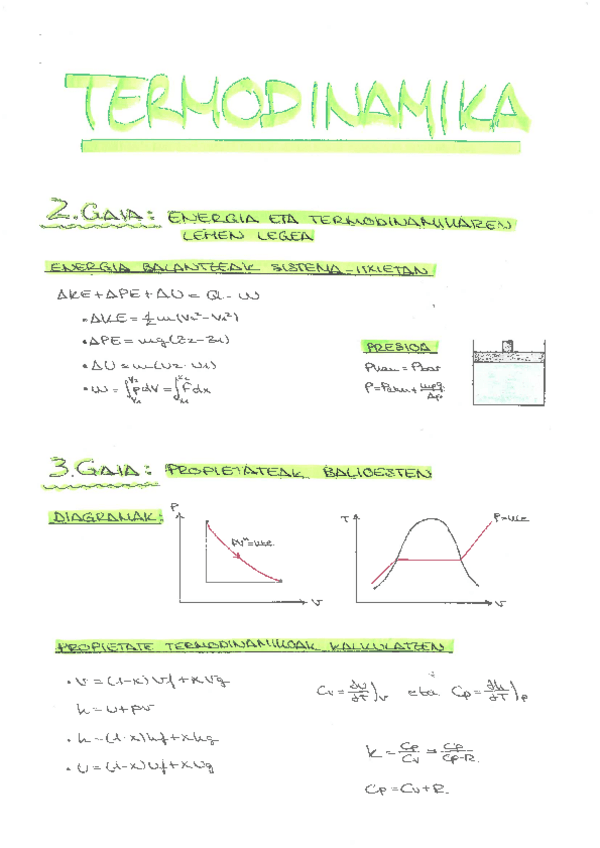 TERMODINAMIKA
2.GAIA: ENERGIA ETA TERMODINAMIKAREN
LEHEN LEGEA
ENERGIA BALANTZEAK SISTEMA ITXIETAN
ΔKE+ΔPE+ΔU = Q - W
• ΔKE = ½ m(V₂² - V₁²)
• ΔPE = mg(z₂ - z₁)
• ΔU = m(u₂ - u₁)
• W = ∫ᵥ₁ⱽ² p dV = ∫ₓ₁ˣ² F dx
PRESIOA
Pkan = Pbar
P = Patm +
3.GAIA: PROPIETATEAK BALIOESTEN
DIAGRAMAK:
P
pVⁿ = kte.
V
T
P = kte
V
PROPIETATE TERMODINAMIKOAK KALKULATZEN
• V = (1-x)Vf + xVg
h = u + pv
• h = (1-x)hf + xhg
• U = (1-x)Uf + xUg
Cv = ∂u/∂T)v eta Cp = ∂h/∂T)p
k = Cp/Cv = Cp/Cp-R.
Cp = Cv + R.